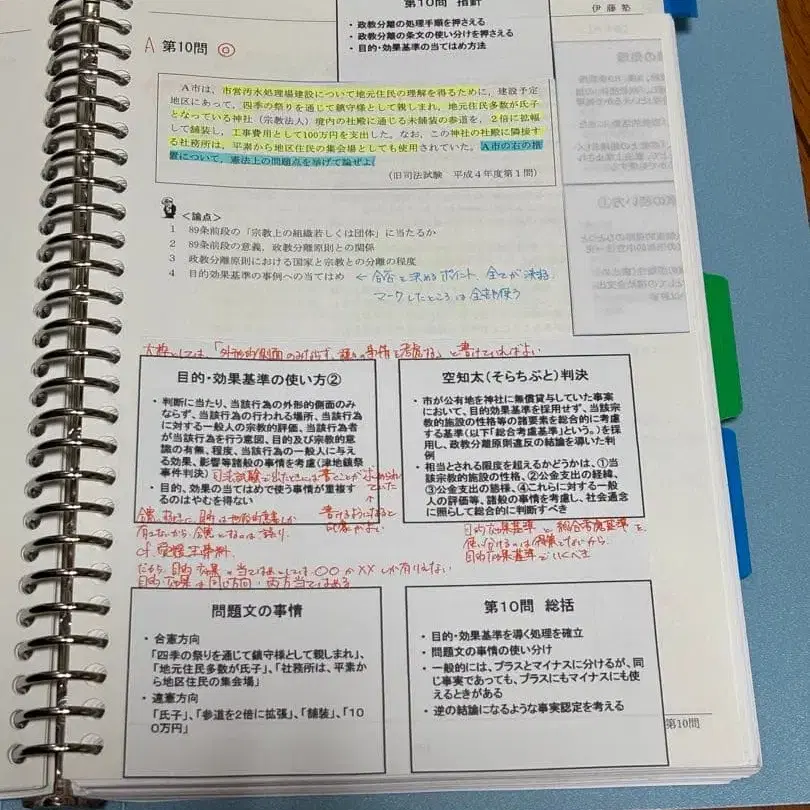 伊藤塾
第10問 指針
・政教分離の処理手順を押さえる
・政教分離の条文の使い分けを押さえる
・目的・効果基準の当てはめ方法
A 第10問 ◎
A市は,市営汚水処理場建設について地元住民の理解を得るために,建設予定
地区にあって,四季の祭りを通じて鎮守様として親しまれ,地元住民多数が氏子
となっている神社(宗教法人)境内の社殿に通じる未舗装の参道を,2倍に拡幅
して舗装し,工事費用として100万円を支出した。なお,この神社の社殿に隣接す
る社務所は,平素から地区住民の集会場としても使用されていた。A市の右の措
置について,憲法上の問題点を挙げて論ぜよ。
(旧司法試験 平成4年度第1問)
<論点>
1 89条前段の「宗教上の組織若しくは団体」に当たるか
2 89条前段の意義,政教分離原則との関係
3 政教分離原則における国家と宗教との分離の程度
4 目的効果基準の事例への当てはめ ←合否を決めるポイント、全てが決まる
マークしたところは全部使う
大枠としては「外形的側面のみならず、種々の事情を考慮する」と書けていればよい
目的・効果基準の使い方②
・判断に当たり、当該行為の外形的側面のみ
ならず、当該行為の行われる場所、当該行為
に対する一般人の宗教的評価、当該行為者
が当該行為を行う意図、目的及び宗教的意識
の有無、程度、当該行為の一般人に与え
る効果、影響等諸般の事情を考慮(津地鎮祭
事件判決)
・目的、効果の当てはめで使う事情が重複す
るのはやむを得ない
空知太(そらちぶと)判決
・市が公有地を神社に無償貸与していた事案
において、目的効果基準を採用せず、当該宗
教的施設の性格等の諸要素を総合的に考慮
する基準(以下「総合考慮基準」という。)を採
用し、政教分離原則違反の結論を導いた判
例
・相当とされる限度を超えるかどうかは、①当
該宗教的施設の性格、②公金支出の経緯、
③公金支出の態様、④これらに対する一般
人の評価等、諸般の事情を考慮し、社会通念
に照らして総合的に判断すべき
目的効果基準と総合考慮基準を
使い分けるのは
目的効果基準でいくべき
cf 受験生
目的効果は同じ方向・両方当てはめる
問題文の事情
・合憲方向
「四季の祭りを通じて鎮守様として親しまれ」、
「地元住民多数が氏子」、「社務所は、平素か
ら地区住民の集会場」
・違憲方向
「氏子」、「参道を2倍に拡張」、「舗装」、「10
0万円」
第10問 総括
・目的・効果基準を導く処理を確立
・問題文の事情の使い分け
・一般的には、プラスとマイナスに分けるが、同
じ事実であっても、プラスにもマイナスにも使
えるときがある
・逆の結論になるような事実認定を考える
第10問